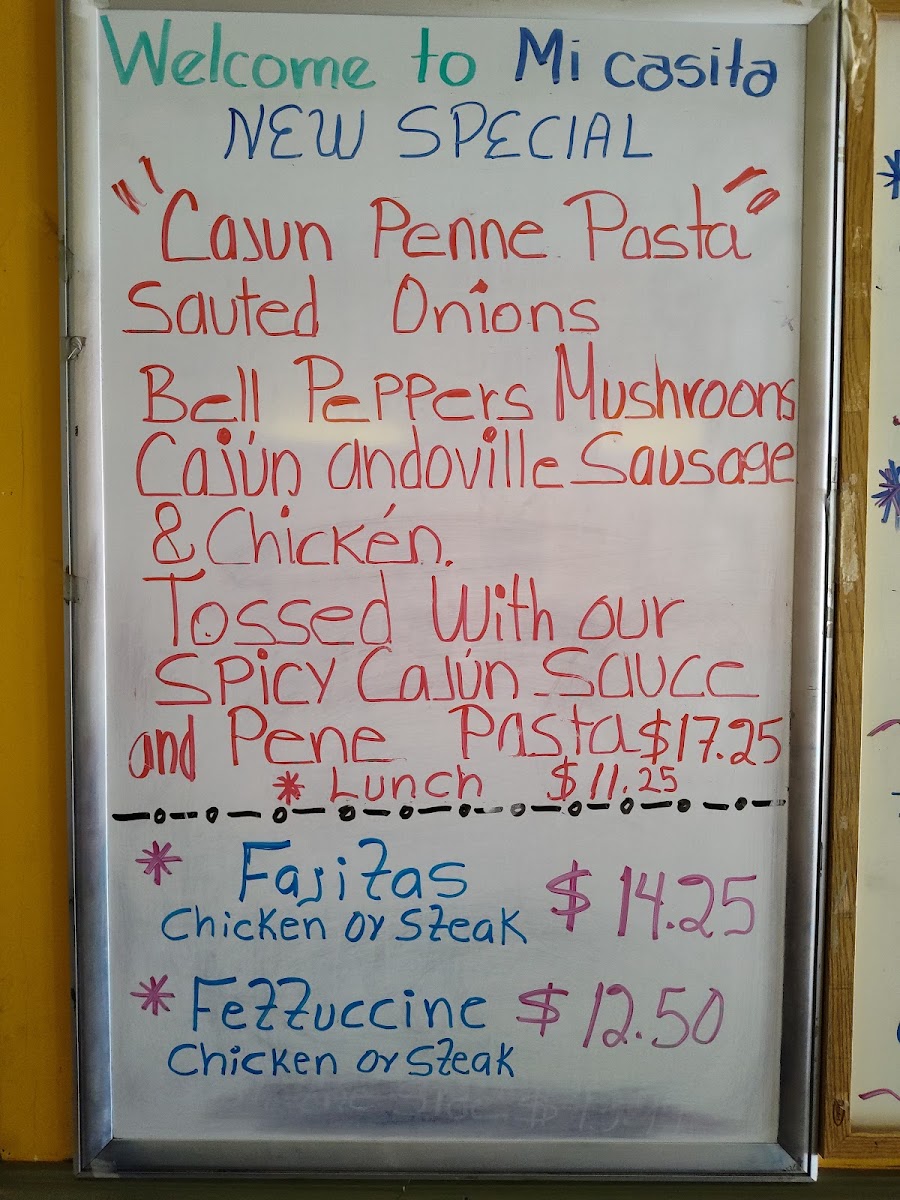 Welcome to Mi casita
NEW SPECIAL
"Cajun Penne Pasta"
Sauted Onions
Bell Peppers Mushroons
Cajún andoville Sausage
& Chickén.
Tossed With our
Spicy Cajún Sauce
and Pene Pasta $17.25
* Lunch $11.25
* Fajitas $14.25
Chicken or Steak
* Fettuccine $12.50
Chicken or Steak